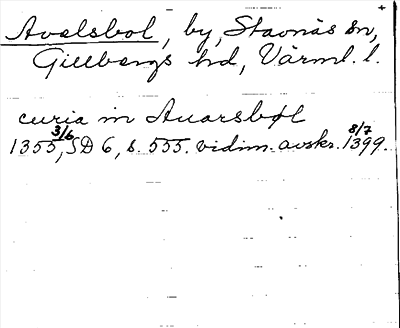 Avelsbol, by, Stavnäs sn,
Gillbergs hd, Värml. l.
curia in Auarsbøl
1355 3/6, SD 6, s. 555. vidim. avskr. 1399 8/7.